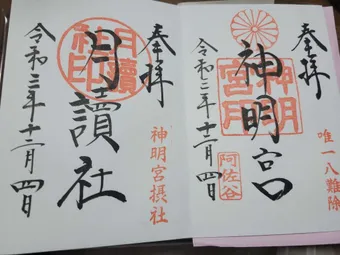 奉拝
唯一八難除
神明宮
神明
宮印
阿佐谷
令和三年十二月四日
奉拝
神明宮摂社
月讀社
月讀
神印
令和三年十二月四日